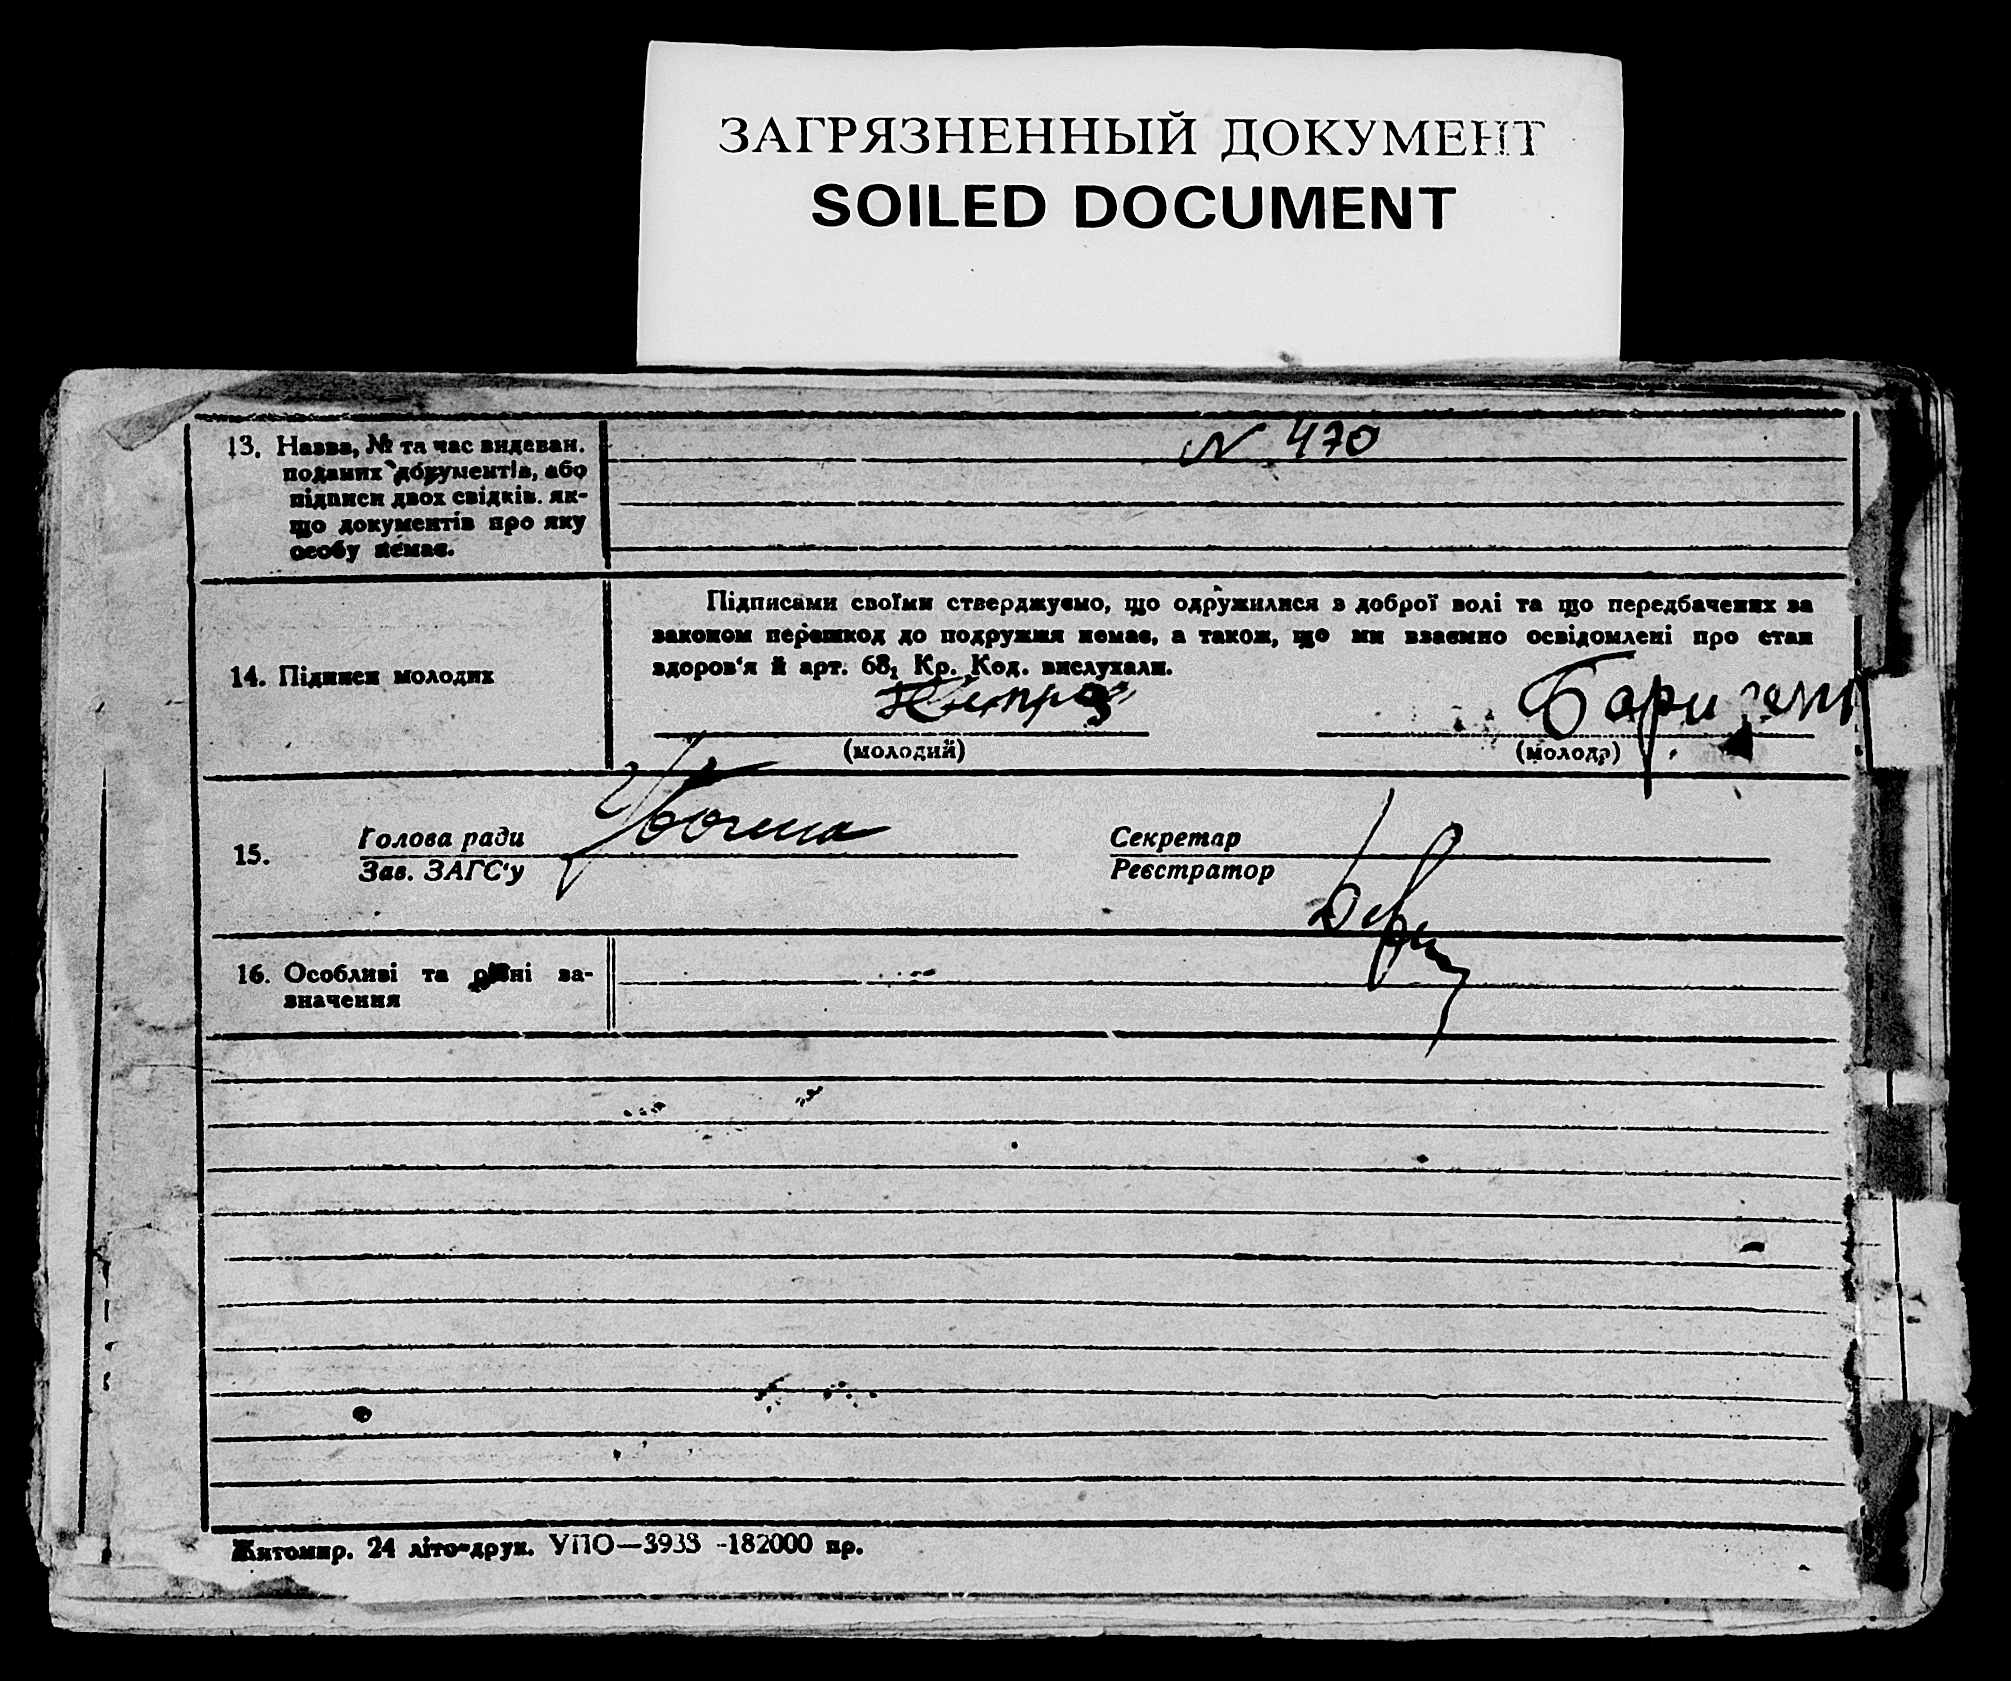 ЗАГРЯЗНЕННЫЙ ДОКУМЕНТ
SOILED DOCUMENT
13. Назва, № та час видеван.
поданих документів, або
підписи двох свідків. як-
що документів про яку
особу немає.
N 470
Підписами своїми стверджуємо, що одружилися з доброї волі та що передбачених за
законом перешкод до подружжя немає, а також, що ми взаємно освідомлені про стан
здоров'я й арт. 68₁ Кр. Код. вислухали.
14. Підписи молодих
(молодий)
(молода)
15.
Голова ради
Зав. ЗАГС'у
Секретар
Реєстратор
16. Особливі та різні за-
значення
Житомир. 24 літо-друк. УПО—3933 -182000 пр.